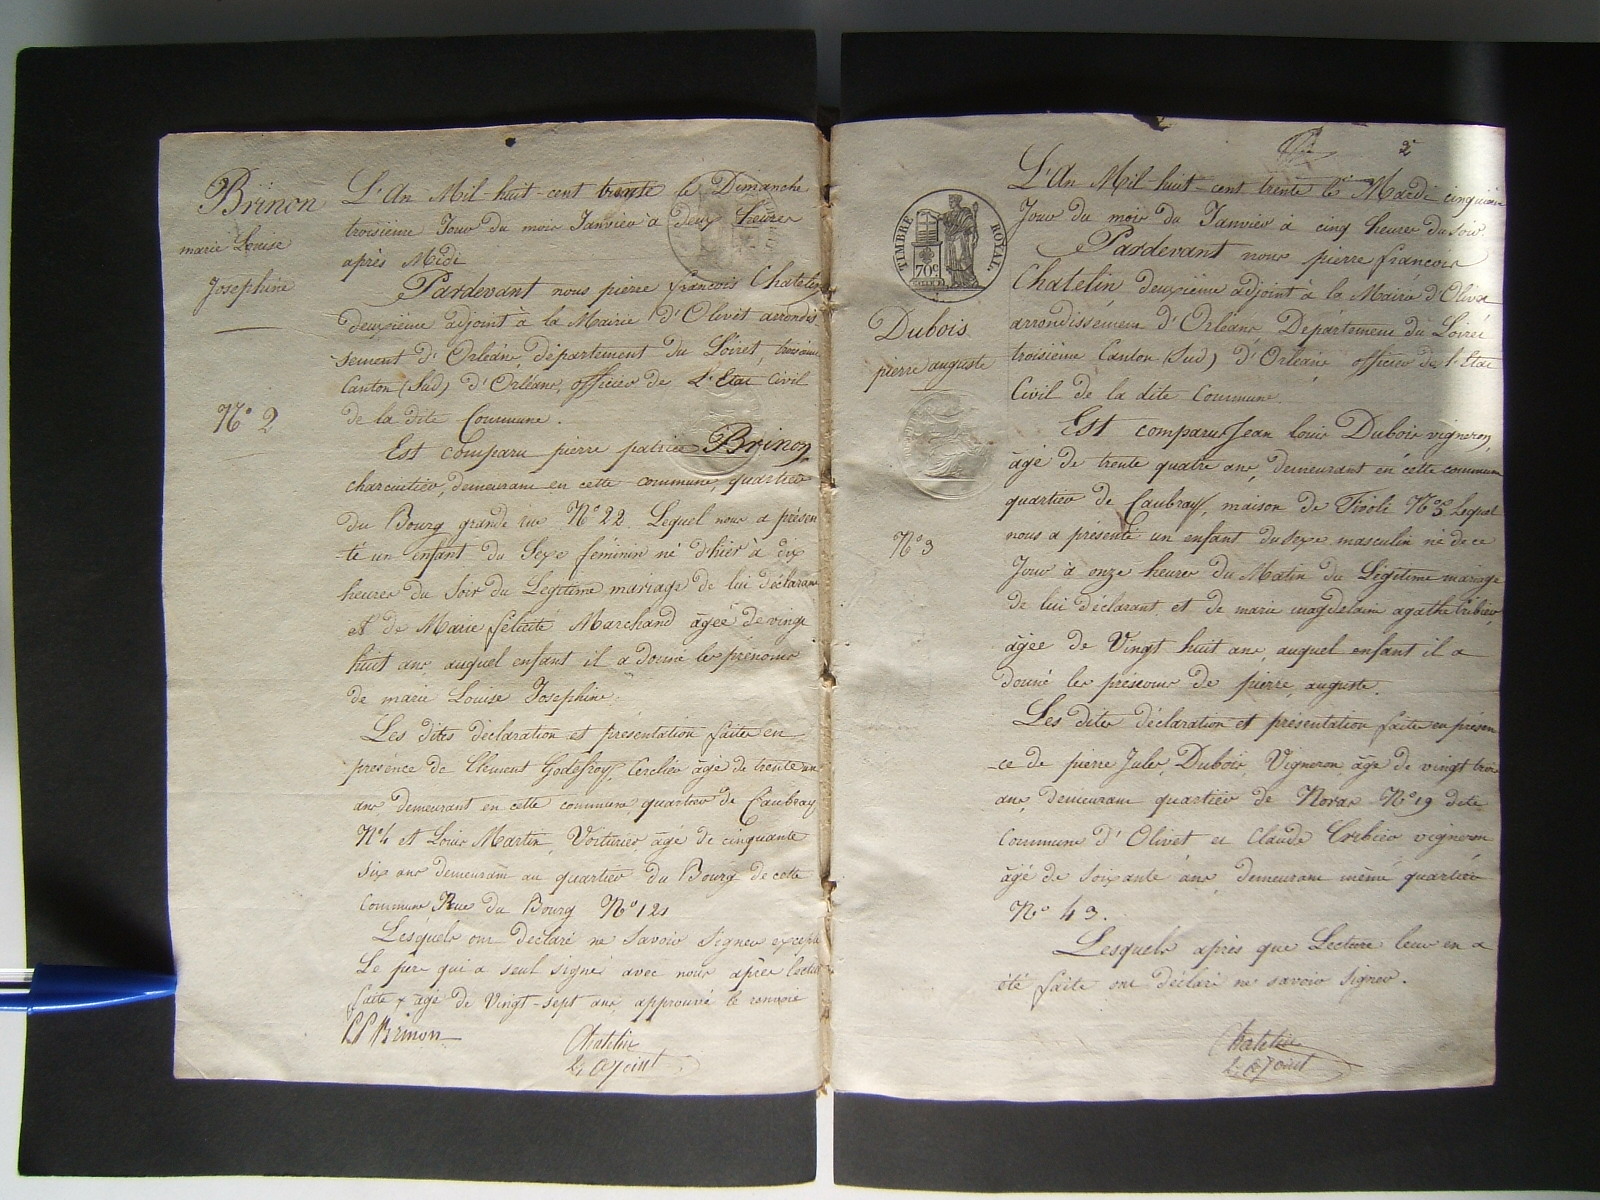 Brinon
marie Louise
Josephine
N° 2
L'An Mil huit-cent trente le Dimanche
troisieme Jour du mois Janvier à deux heures
après Midi
Pardevant nous pierre françois Chatelin
deuxième adjoint à la Mairie d'Olivet arrondis
sement d'Orléans, département du Loiret, troisième
Canton (Sud) d'Orléans, officier de L'Etat Civil
de la dite Commune.
Est Comparu pierre patrice Brinon,
charcutier, demeurant en cette commune, quartier
du Bourg grande rue N° 22. Lequel nous a présen
té un enfant du Sexe féminin né d'hier à dix
heures du Soir du Légitime mariage de lui déclarant
et de Marie félicité Marchand âgée de vingt
huit ans, auquel enfant il a donné les prénoms
de marie Louise Josephine.
Les dites déclaration et présentation faites en
présence de Clément Godefroy, Cerclier âgé de trente un
ans, demeurant en cette commune, quartier de Caubray
N° 4 et Louis Martin, Voiturier âgé de cinquante
six ans demeurant au quartier du Bourg de cette
Commune Rue du Bourg N° 121
Lesquels ont déclaré ne Savoir Signer excepté
Le pere qui a seul signé avec nous après lecture
faite x âgé de Vingt-sept ans, approuvé le renvoie
PP Brinon
Chatelin
2. Adjoint
2e
TIMBRE ROYAL.
70c
Dubois
pierre auguste
N° 3
L'An Mil-huit-cent trente le Mardi cinquième
Jour du mois du Janvier à cinq heures du soir
Pardevant nous pierre francois
Chatelin deuxième adjoint à la Mairie d'Olivet
arrondissement d'Orléans Département du Loiret
troisieme Canton (Sud) d'Orléans, officier de l'Etat
Civil de la dite Commune.
Est comparu Jean louis Dubois vigneron,
âgé de trente quatre ans, demeurant en cette commune
quartier de Caubray, maison de Tivoli N° 3 Lequel
nous a présenté un enfant du Sexe masculin né de ce
Jour à onze heures du Matin du Légitime mariage
de lui déclarant et de marie magdelaine agathe tribier,
âgée de Vingt huit ans, auquel enfant il a
donné les prénoms de pierre auguste.
Les dites déclaration et présentation faites en présen
ce de pierre Jules Dubois, Vigneron, âgé de vingt trois
ans, demeurant quartier de Noras N° 19 dite
Commune d'Olivet et Claude tribier vigneron
âgé de soixante ans, demeurant même quartier
N° 43.
Lesquels après que Lecture leur en a
été faite ont déclaré ne savoir signer.
Chatelin
2. Adjoint